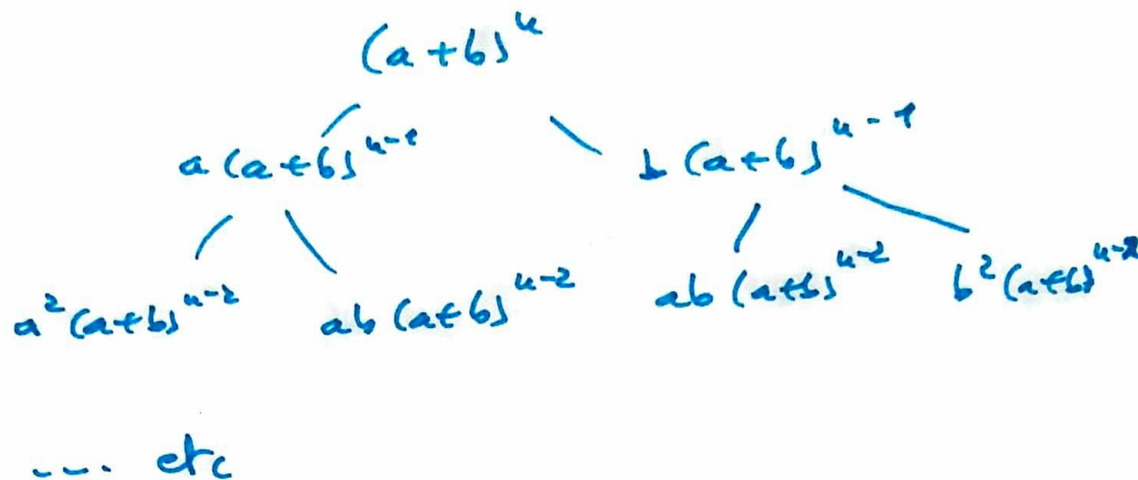 (a+b)^n
a(a+b)^{n-1} b(a+b)^{n-1}
a^2(a+b)^{n-2} ab(a+b)^{n-2} ab(a+b)^{n-2} b^2(a+b)^{n-2}
.... etc